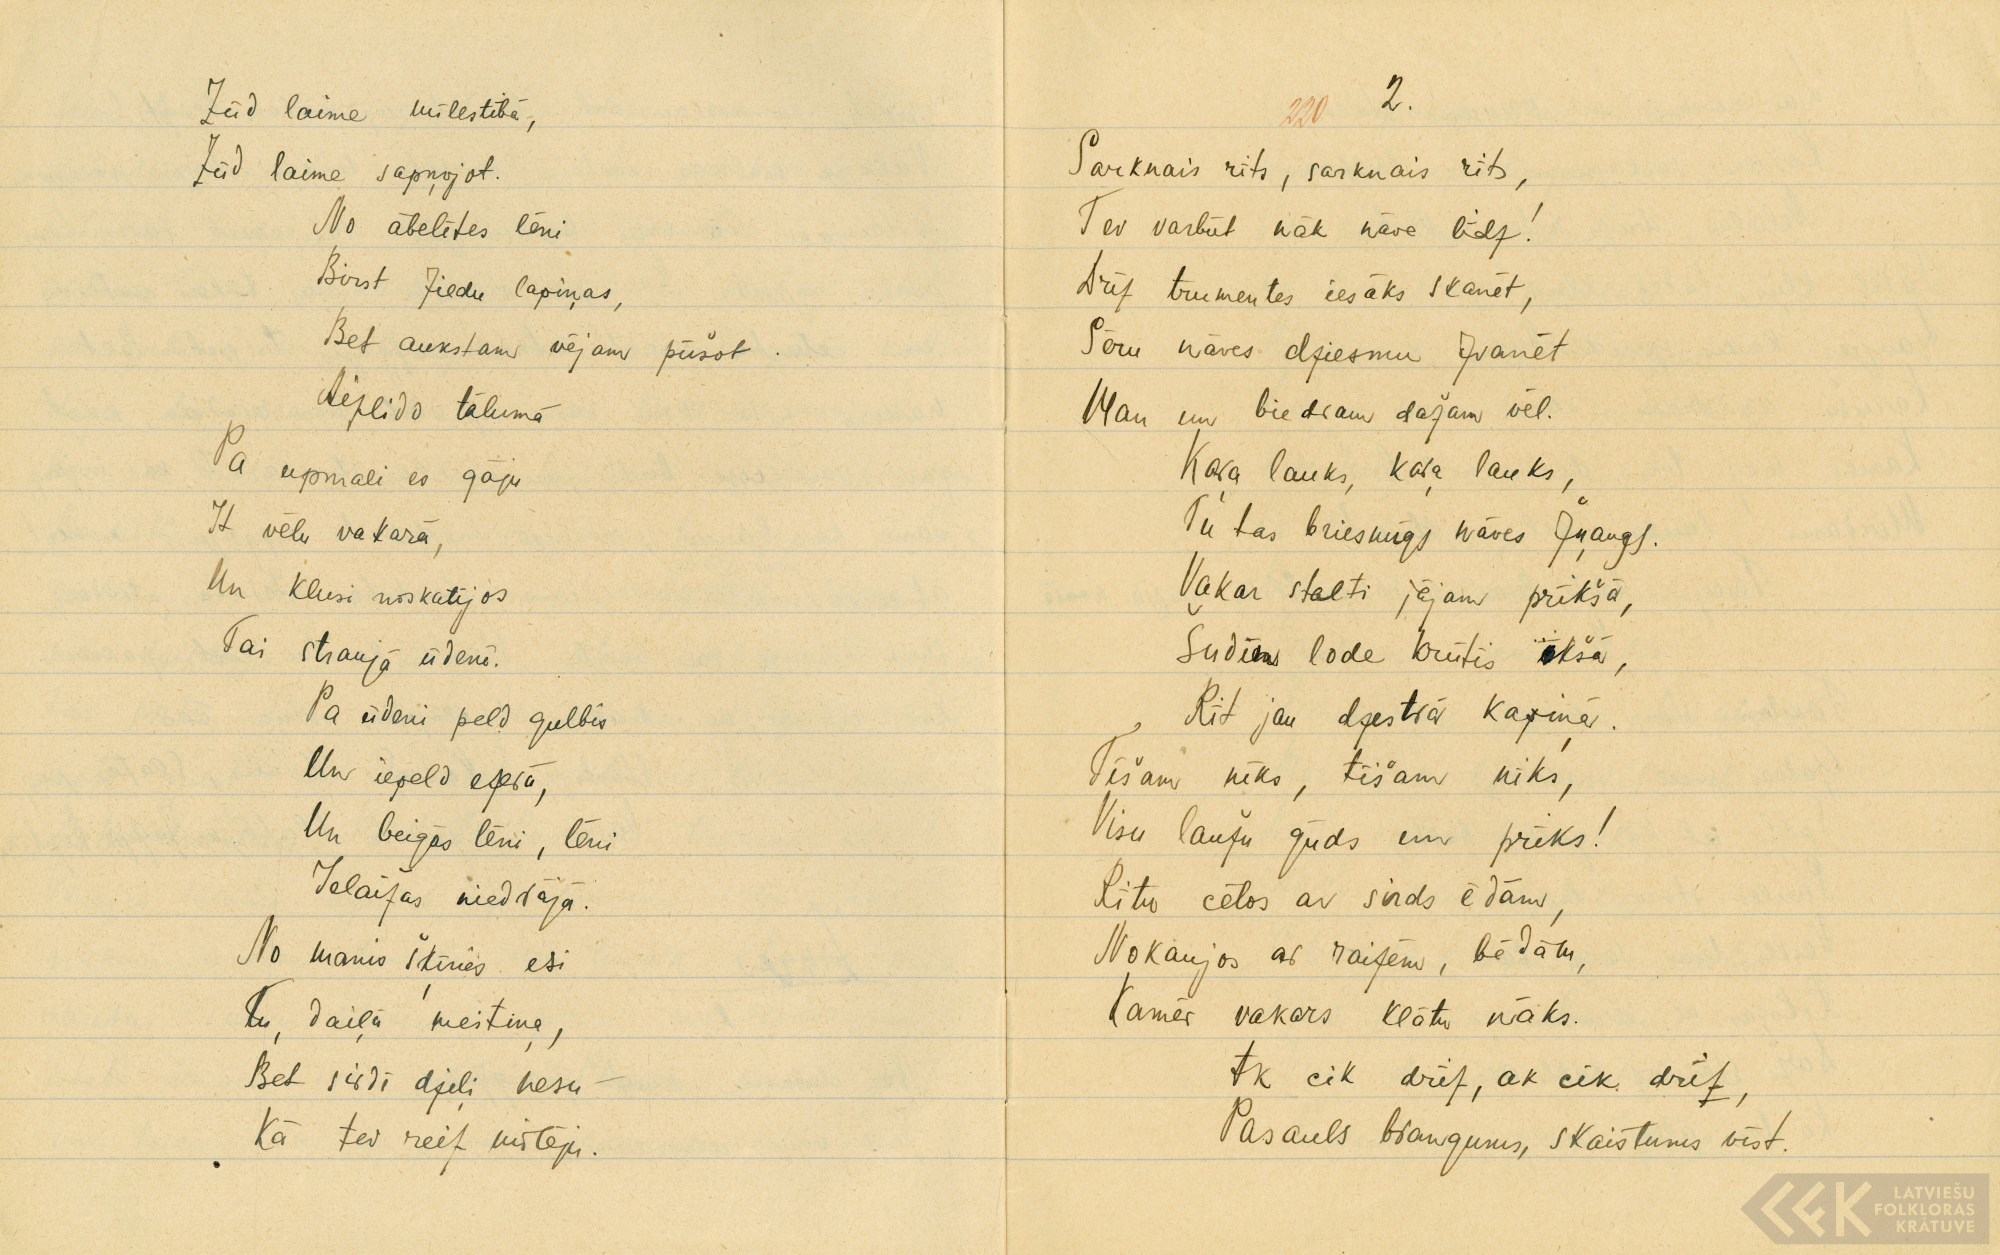 Zūd laime mīlestībā,
Zūd laime sapņojot.
No ābelītes lēni
Birst ziedu lapiņas,
Bet aukstam vējam pūšot
Aizlido tālumā
Pa upmali es gāju
It vēlu vakarā,
Un klusi noskatījos
Tai straujā ūdenī.
Pa ūdeni peld gulbis
Un iepeld ezerā,
Un beigās lēni, lēni
Ielaižas niedrājā.
No manis šķīries esi
Tu, daiļā meitiņa,
Bet sirdī dziļi nesu –
Kā tev reiz mīlēju.
220 2.
Sarknais rīts, sarknais rīts,
Tev varbūt nāk nāve līdz!
Drīz trumentes iesāks skanēt,
Sēru nāves dziesmu zvanēt
Man un biedram dažam vēl.
Kaŗa lauks, kaŗa lauks,
Tu tas briesmīgs nāves žņaugs.
Vakar stalti jājam prikšā,
Šudien lode krūtīs ikšā,
Rīt jau dzestrā kapiņā.
Tišam niks, tišam niks,
Visu laužu gūds un prieks!
Rītu cēlos ar sirds ēdām,
Nokaujos ar raizēm, bēdām,
Kamēr vakars klātu nāks.
Ak cik drīz, ak cik drīz,
Pasauls brangums, skaistums vīst.
LATVIEŠU
FOLKLORAS
KRĀTUVE